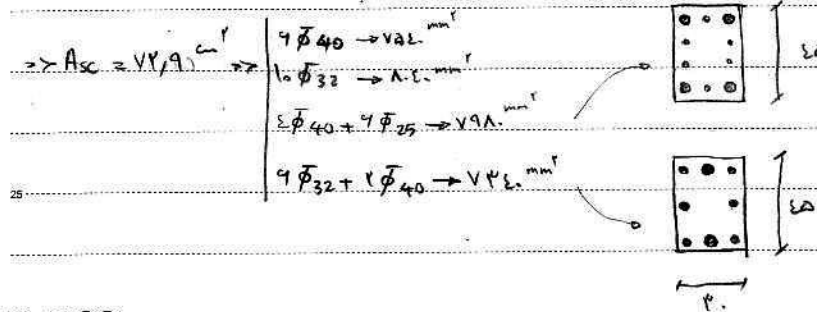 => Asc = ۷۲,۹۱ cm² => ۶Φ40 → ۷۵٤۰ mm²
۱۰Φ32 → ۸۰٤۰ mm²
٤Φ40 + ۶Φ25 → ۷۹۸۰ mm²
۶Φ32 + ۲Φ40 → ۷۳٤۰ mm²
25
٤۵
۳۰